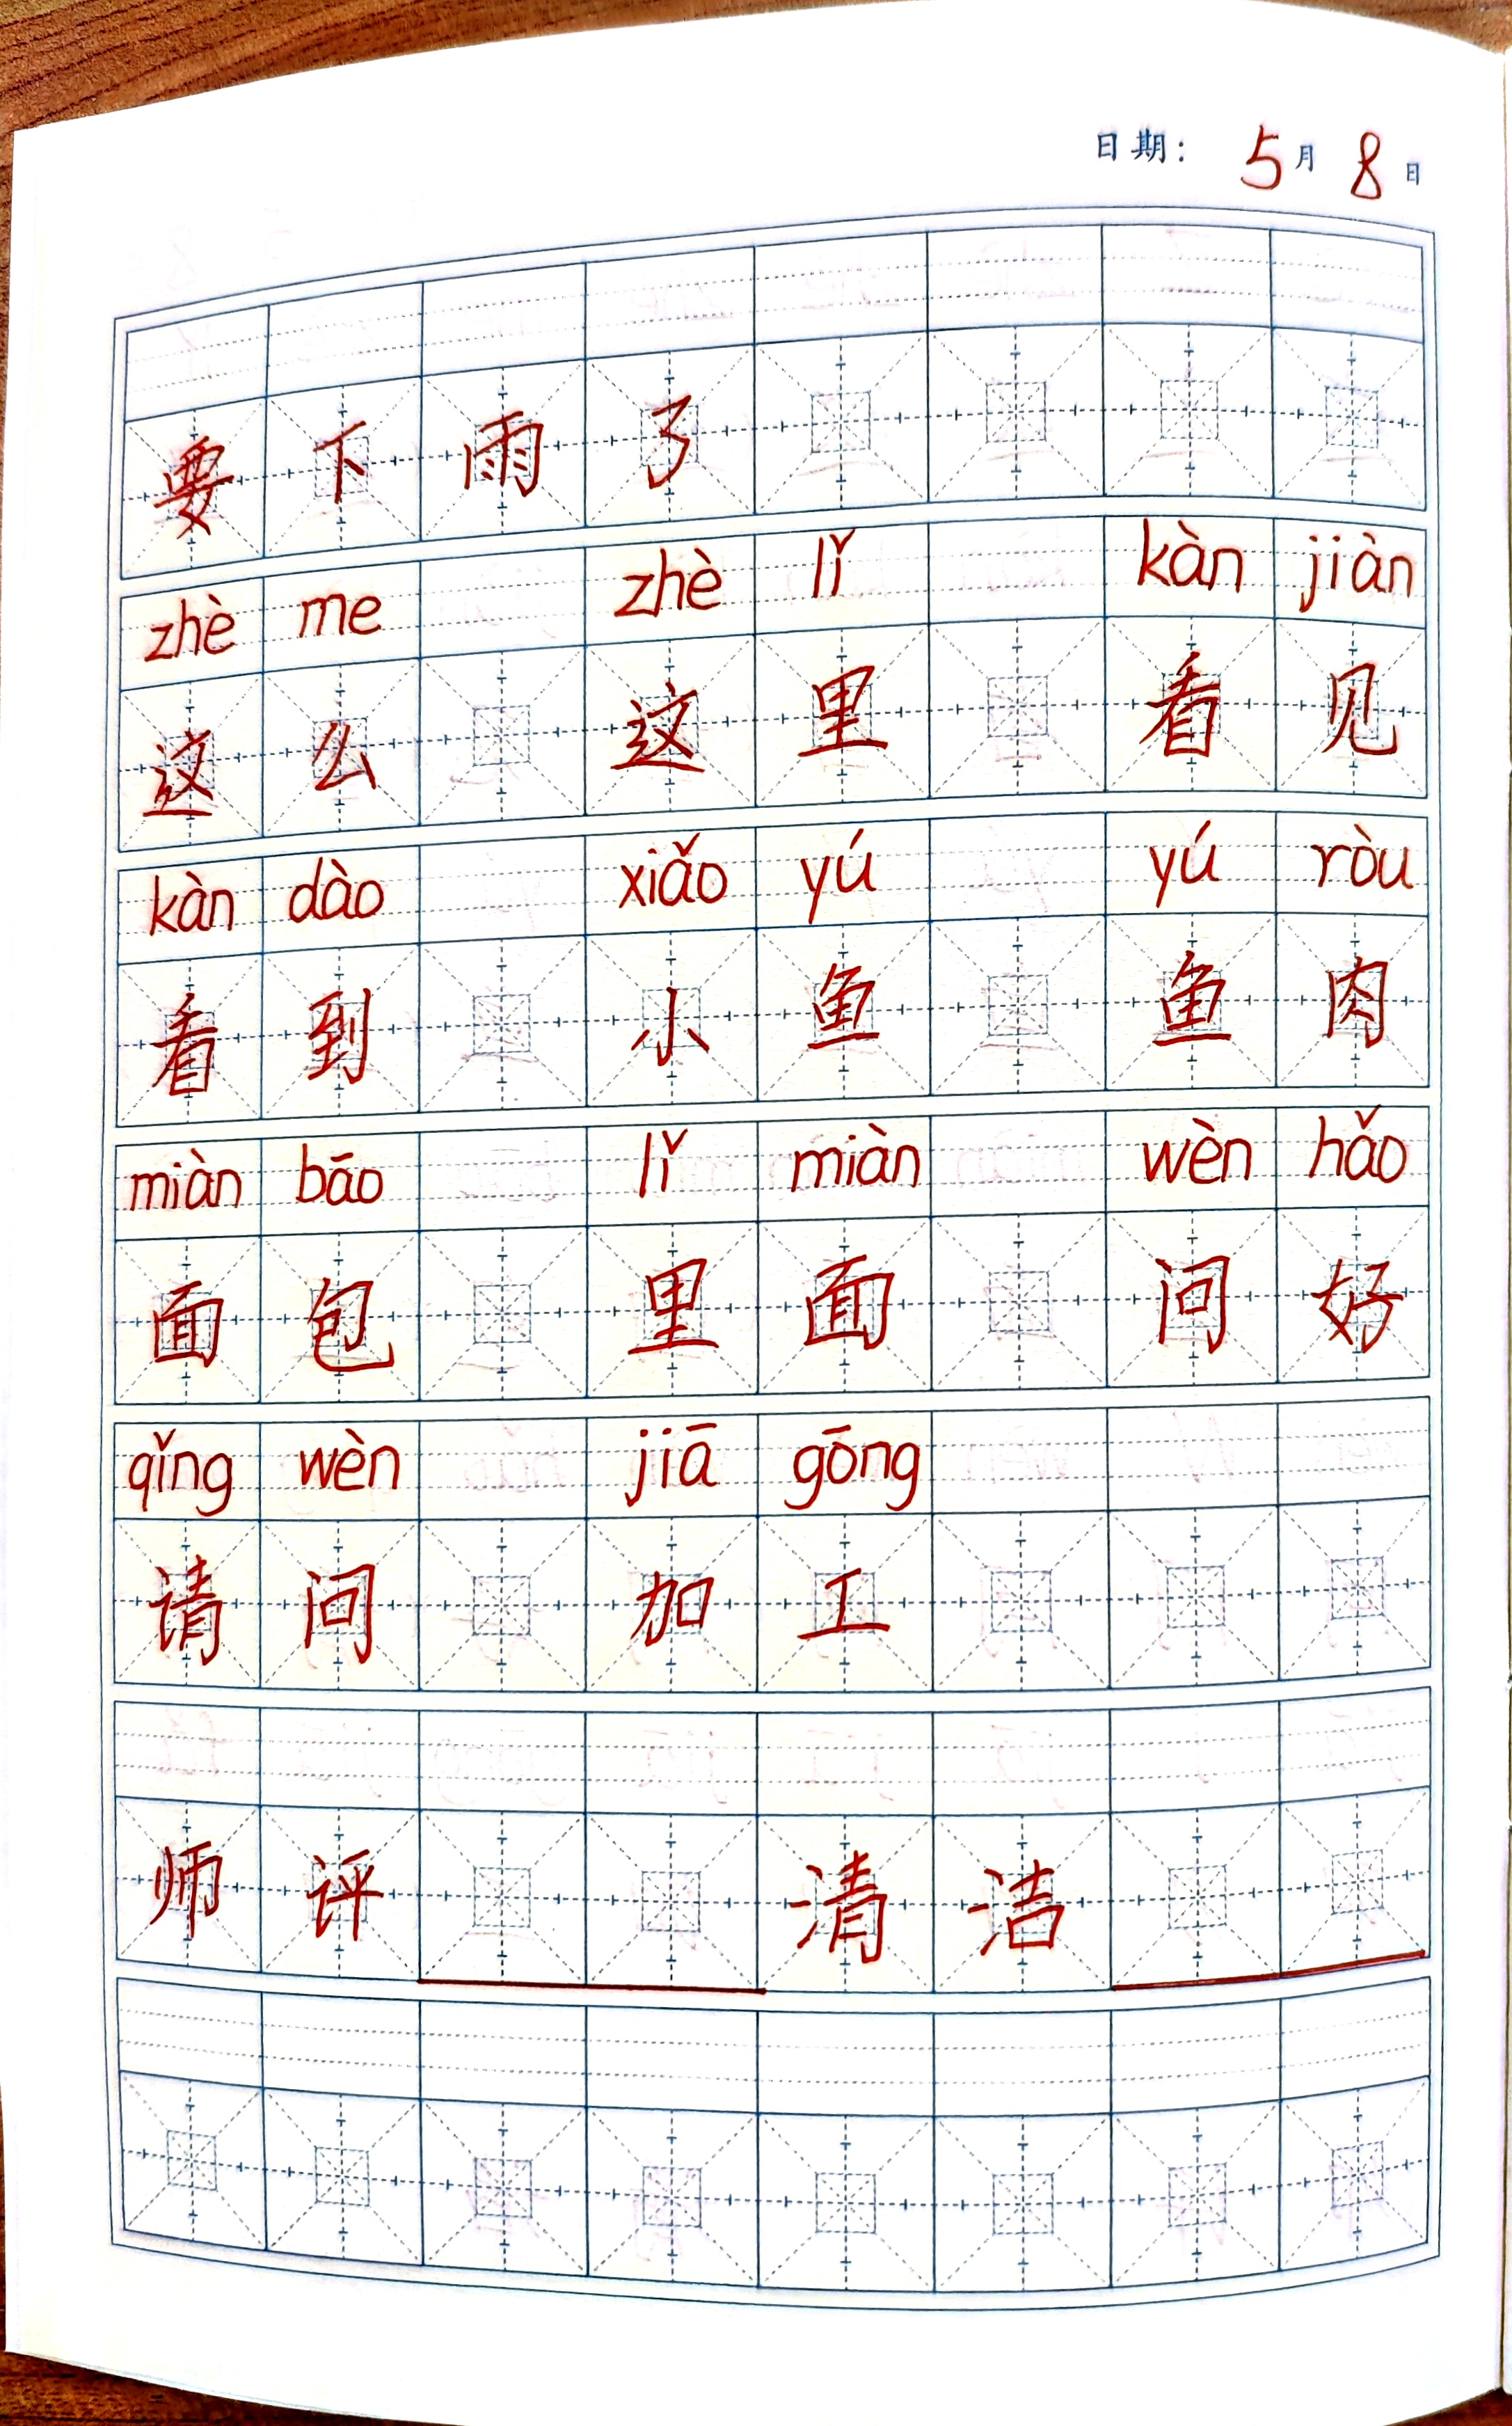 日期： 5月 8日
要下雨了
zhè me zhè lǐ kàn jiàn
这么 这里 看见
kàn dào xiǎo yú yú ròu
看到 小鱼 鱼肉
miàn bāo lǐ miàn wèn hǎo
面包 里面 问好
qǐng wèn jiā gōng
请问 加工
师评 清洁